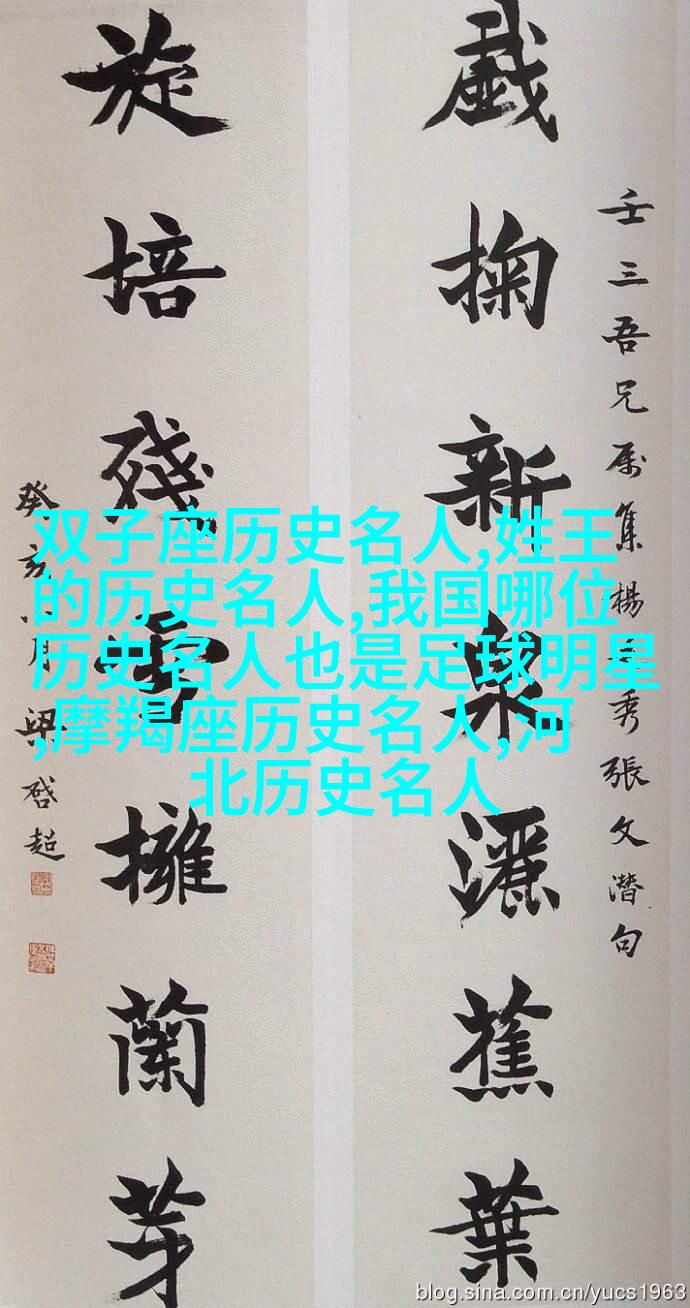 壬三吾兄属集楊
秀張文潛句
戲掬新泉灑蕉葉
旋培殘雪擁蘭芽
癸亥八月梁啓超
双子座历史名人,姓王
的历史名人,我国哪位
历史名人也是足球明星
,摩羯座历史名人,河
北历史名人
blog.sina.com.cn/yucs1963